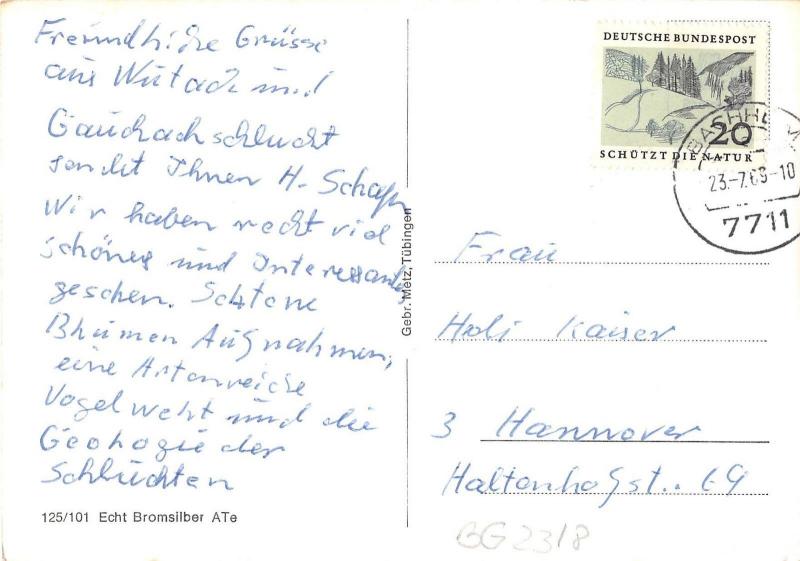 Freundliche Grüsse
aus Wutach und
Gauchachschlucht
sendet Ihnen H.
Wir haben recht viel
schönes und Interessantes
gesehen. Seltene
Blumen Aufnahmen,
eine Artenreiche
Vogelwelt und die
Geologie der
Schluchten
125/101 Echt Bromsilber ATe
Gebr. Metz, Tübingen
DEUTSCHE BUNDESPOST
20
SCHÜTZT DIE NATUR
23.-7.69-10
7711
Frau
Kaiser
3 Hannover
69
BG 2318